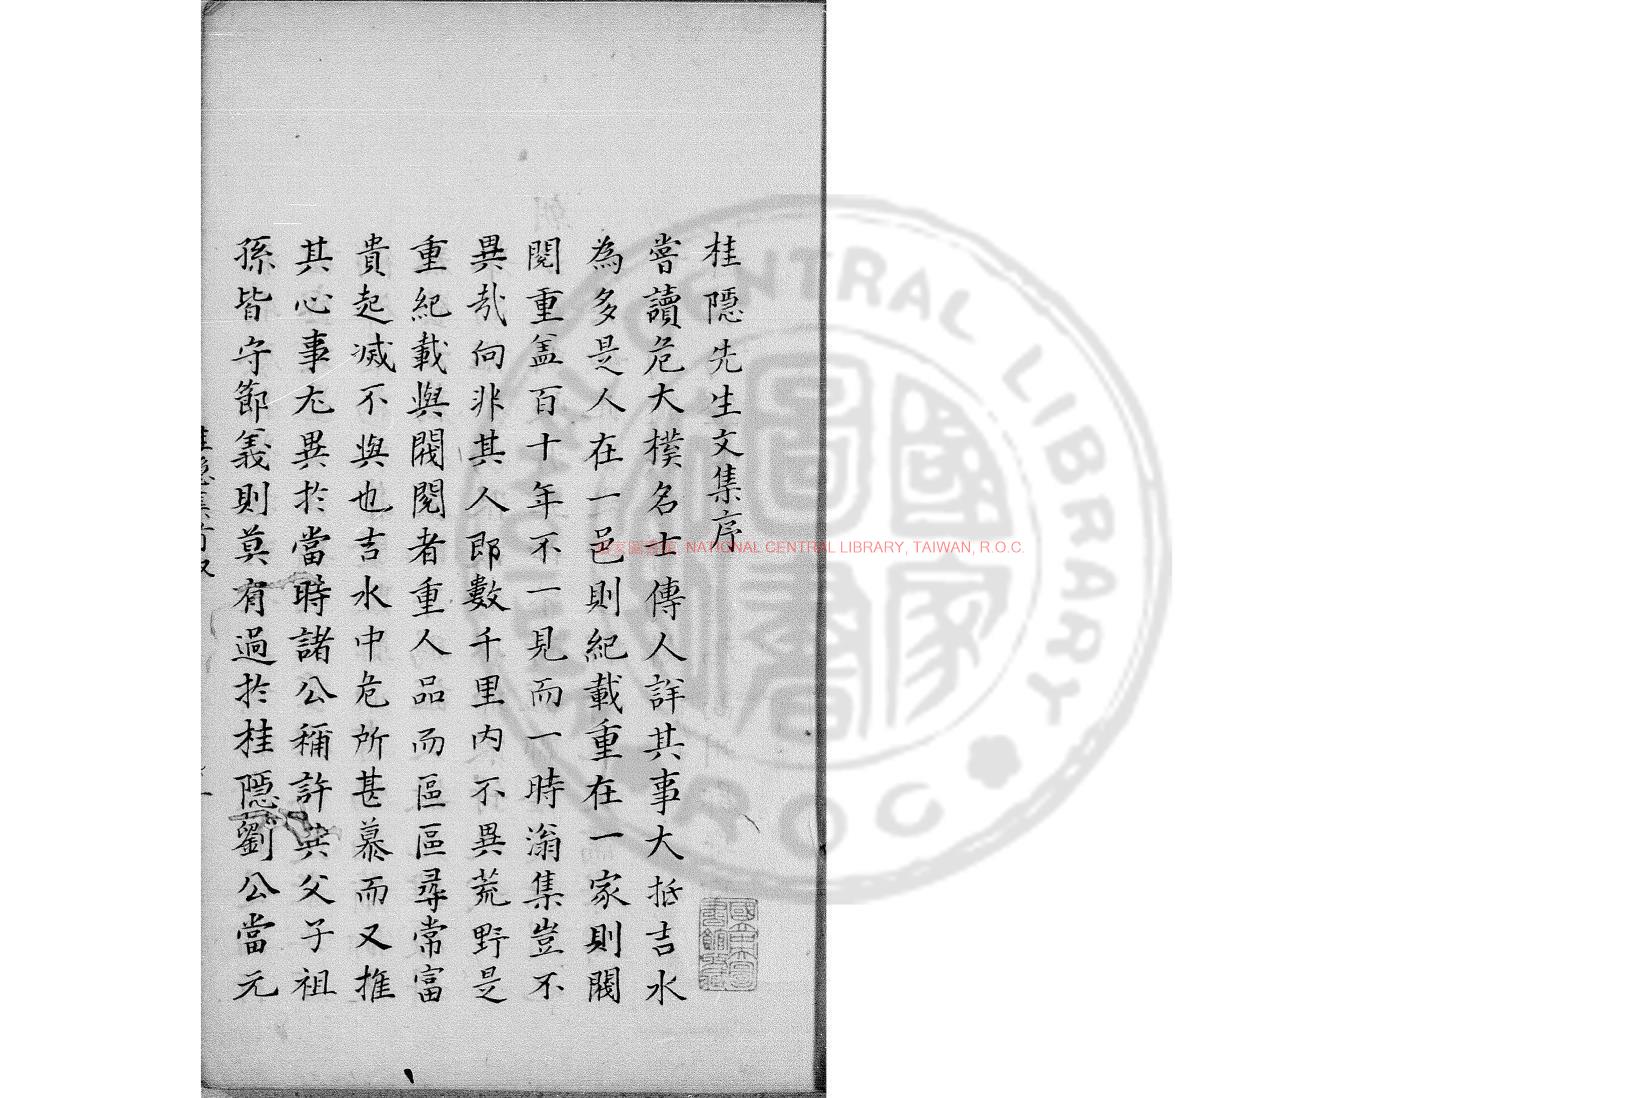 桂隱先生文集序
嘗讀危大樸名士傳人詳其事大抵吉水
為多是人在一邑則紀載重在一家則閥
閱重盖百十年不一見而一時滃集豈不
異哉向非其人郎數千里內不異荒野是
重紀載與閥閱者重人品而區區尋常富
貴起減不與也吉水中危所甚慕而又推
其心事尤異於當時諸公稱許其父子祖
孫皆守節義則莫有過於桂隱劉公當元
國家圖書館 NATIONAL CENTRAL LIBRARY, TAIWAN, R.O.C.
NATIONAL CENTRAL LIBRARY
R O C
國家圖書